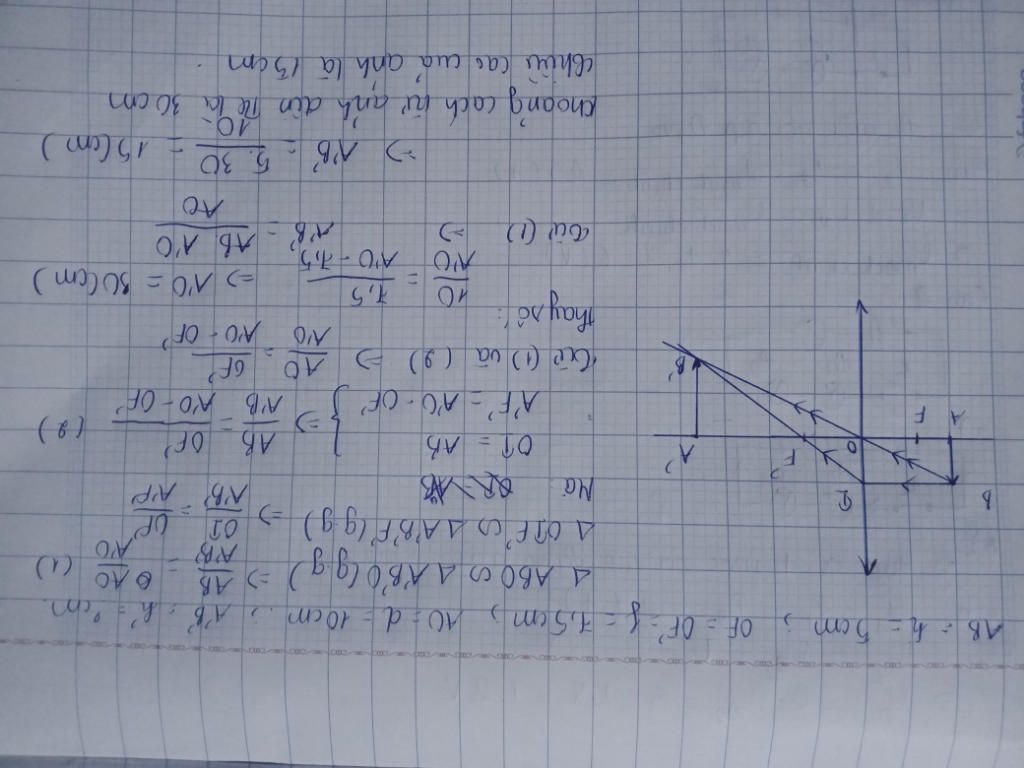 AB = h = 5cm ; OF = OF' = f = 7,5cm ; AO = d = 10cm ; A'B' = h' = ?cm.
Δ ABO ∽ Δ A'B'O (g.g) ⇒ AB/A'B' = AO/A'O (1)
Δ OIF' ∽ Δ A'B'F' (g.g) ⇒ OI/A'B' = OF'/A'F'
Mà
OI = AB
A'F' = A'O - OF' } ⇒ AB/A'B' = OF'/(A'O - OF') (2)
Từ (1) và (2) ⇒ AO/A'O = OF'/(A'O - OF')
Thay số :
10/A'O = 7,5/(A'O - 7,5) ⇒ A'O = 30(cm)
Từ (1) ⇒ A'B' = AB.A'O/AO
⇒ A'B' = 5.30/10 = 15(cm)
Khoảng cách từ ảnh đến là 30cm
chiều cao của ảnh là 15cm.
B
I
A
F
O
F'
A'
B'